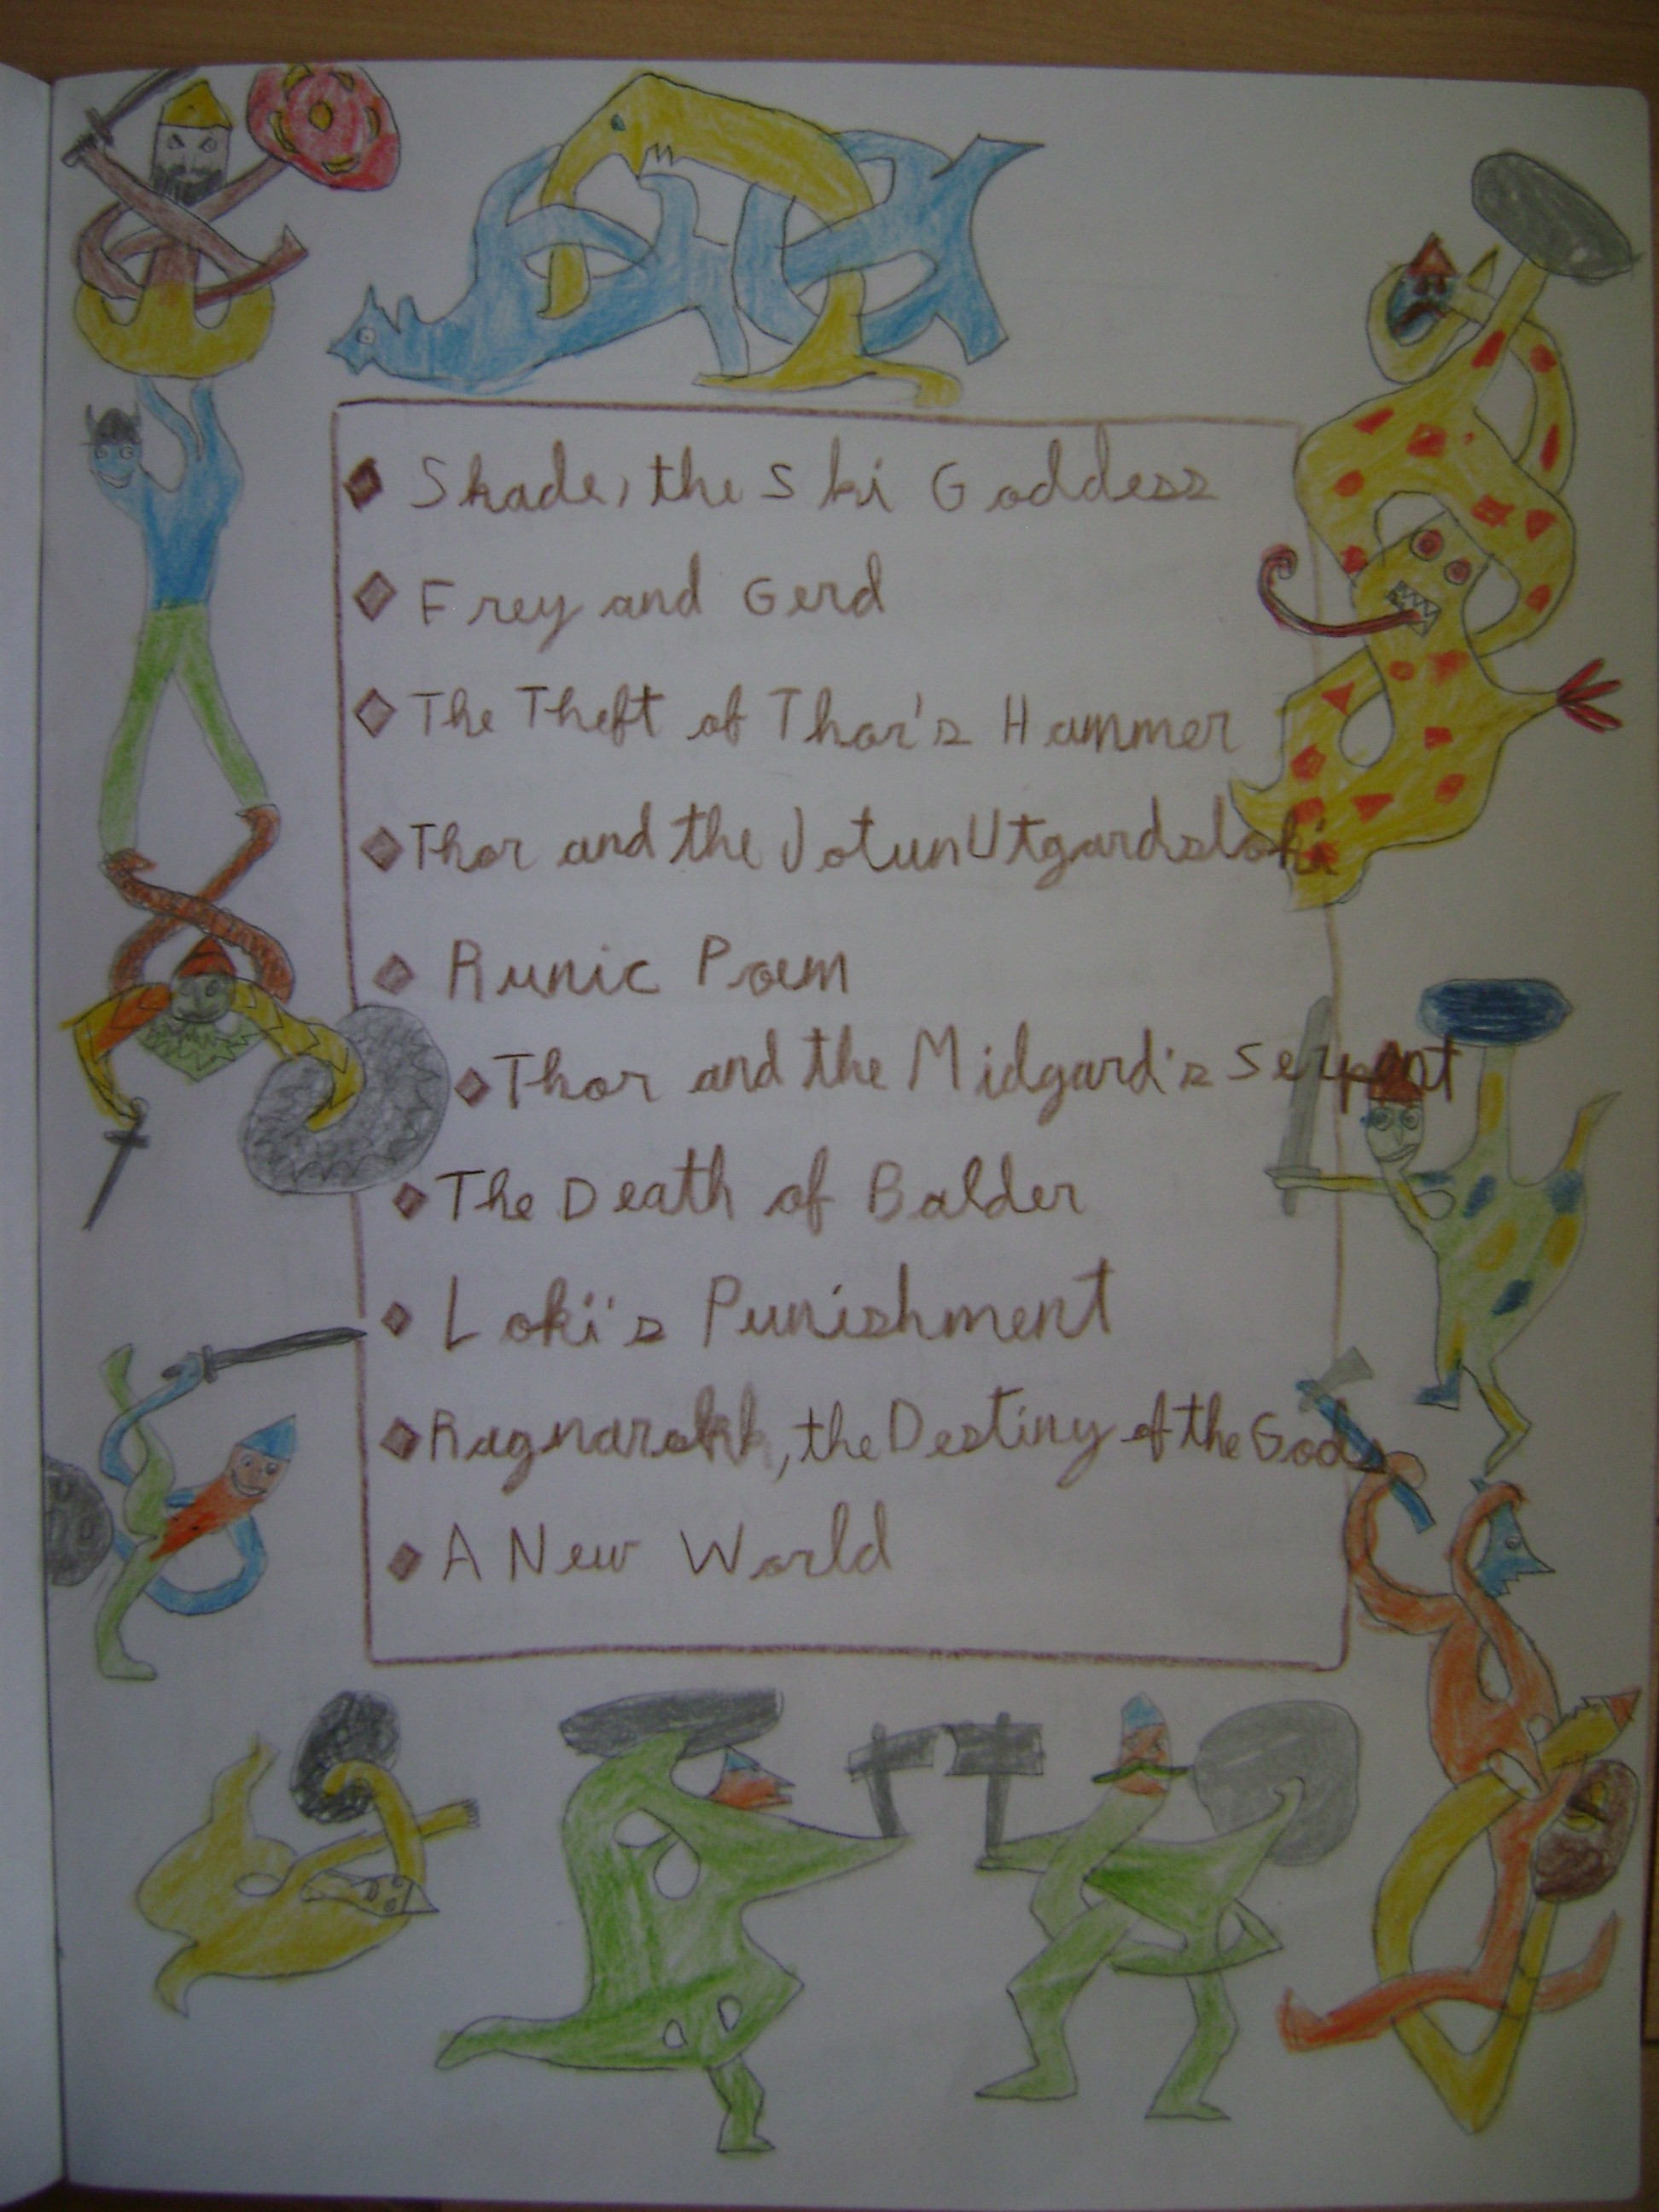 Skade, the Ski Goddess
Frey and Gerd
The Theft of Thor's Hammer
Thor and the Jotun Utgardsloki
Runic Poem
Thor and the Midgard's Serpent
The Death of Balder
Loki's Punishment
Ragnarokk, the Destiny of the Gods
A New World